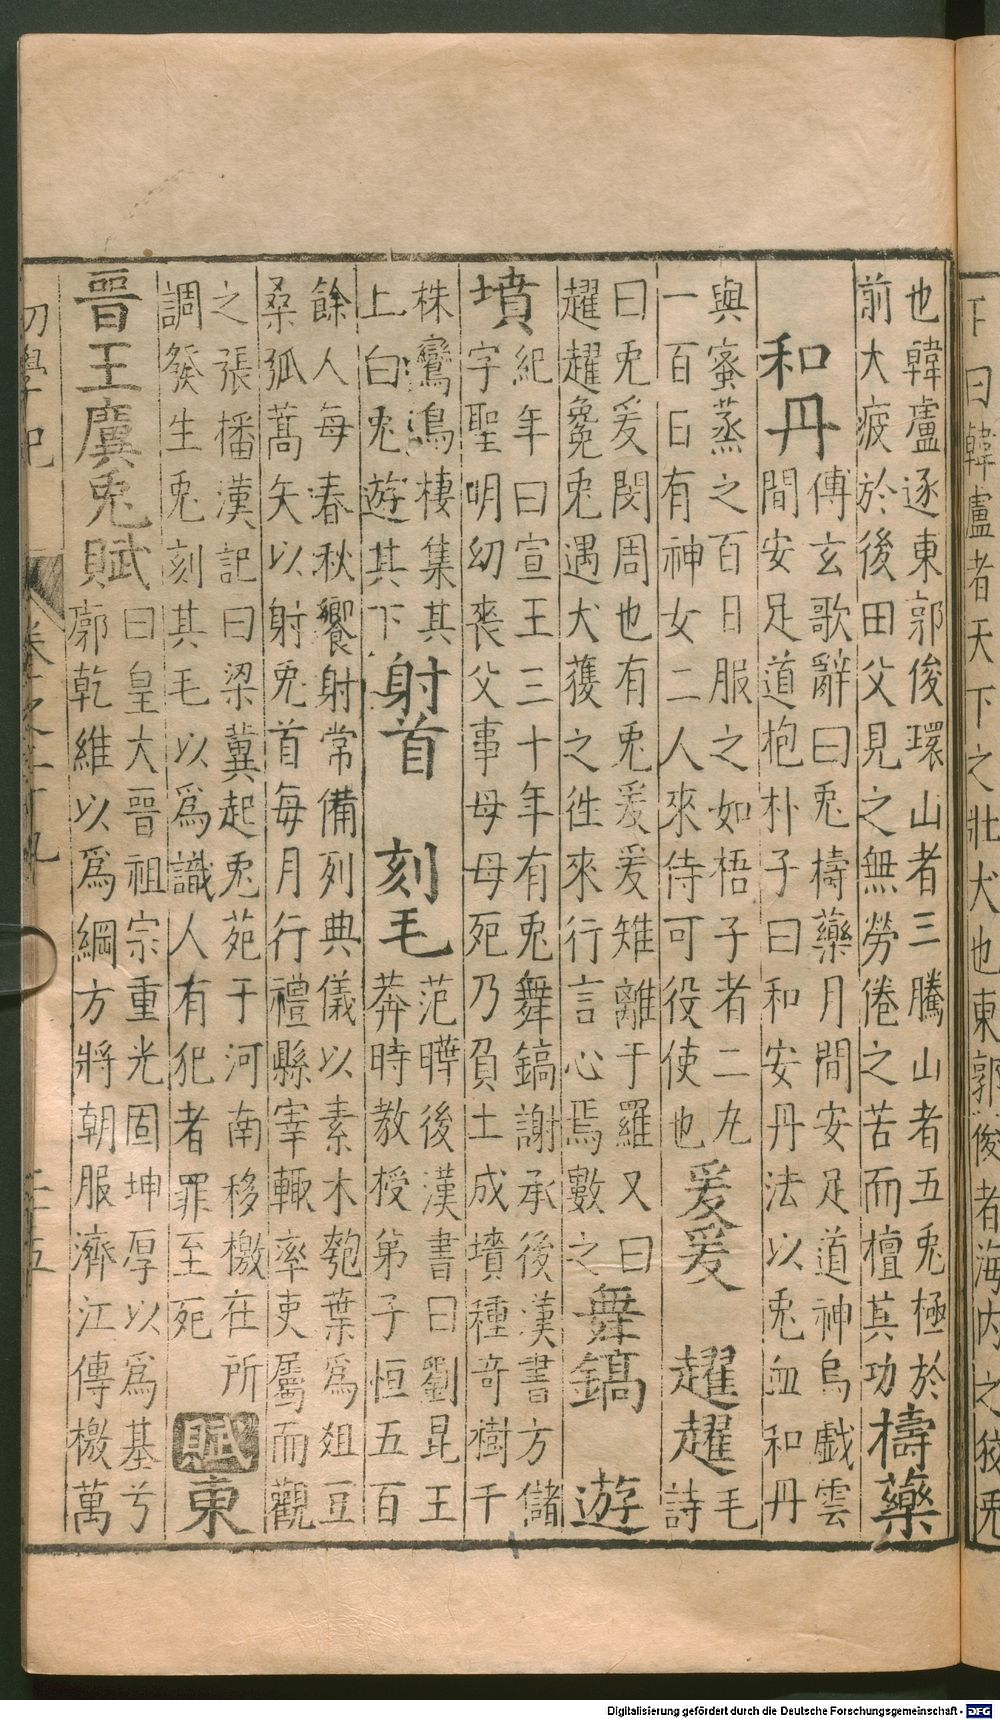 下曰韓盧者天下之壯犬也東郭俊者海内之狡兎
也韓盧逐東郭俊環山者三騰山者五兎極於
前犬疲於後田父見之無勞倦之苦而檀其功
檮藥
和丹
傅玄歌辭曰兎檮藥月間安足道神烏戲雲
間安足道抱朴子曰和安丹法以兎血和丹
與蜜蒸之百日服之如梧子者二丸
一百日有神女二人來侍可役使也
爰爰 趯趯
毛
詩
曰兎爰閔周也有兎爰爰雉離于羅又曰
趯趯毚兎遇犬獲之徃來行言心焉數之
舞鎬 遊
墳
紀年曰宣王三十年有兎舞鎬謝承後漢書方儲
字聖明幼喪父事母母死乃負土成墳種奇樹千
株鸞鳥棲集其
上白兎遊其下
射首 刻毛
范曄後漢書曰劉昆王
莽時教授第子恒五百
餘人每春秋饗射常備列典儀以素木匏葉爲俎豆
桑弧蒿矢以射兎首每月行禮縣宰輙率吏屬而觀
之張璠漢記曰梁冀起兎苑于河南移檄在所
調發生兎刻其毛以爲識人有犯者罪至死
賦 東
晉王廙兎賦
曰皇大晉祖宗重光固坤厚以爲基兮
廓乾維以爲綱方將朝服濟江傳檄萬
初學記
Digitalisierung gefördert durch die Deutsche Forschungsgemeinschaft - DFG